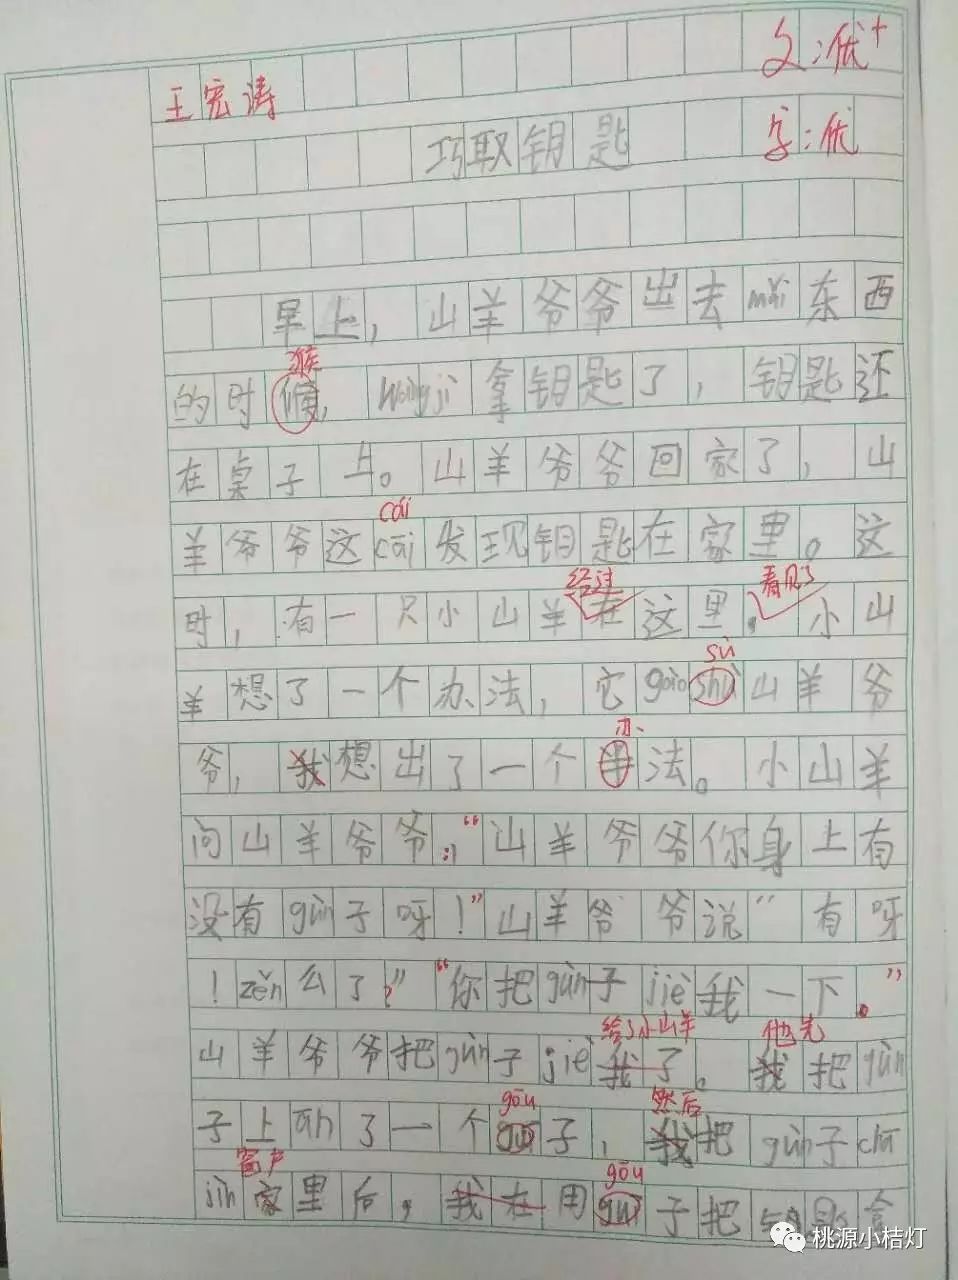 文:优+
王宏涛
巧取钥匙
字:优
早上,山羊爷爷出去mǎi东西
猴
的时候,wàngjì拿钥匙了,钥匙还
在桌子上。山羊爷爷回家了,山
cái
羊爷爷这cāi发现钥匙在家里。这
经过 看见了
时,有一只小山羊在这里,小山
sù
羊想了一个办法,它gàoshù山羊爷
办
爷,我想出了一个半法。小山羊
问山羊爷爷:“山羊爷爷你身上有
没有gùn子呀!”山羊爷爷说“有呀
!zěn么了?”“你把gùn子jiè我一下。”
给了小山羊 他先
山羊爷爷把gùn子jiè我了。我把gùn
gōu 然后
子上ān了一个子,我把gùn子chā
窗户 gōu
jìn家里后,我在用gū子把钥匙拿
桃源小桔灯